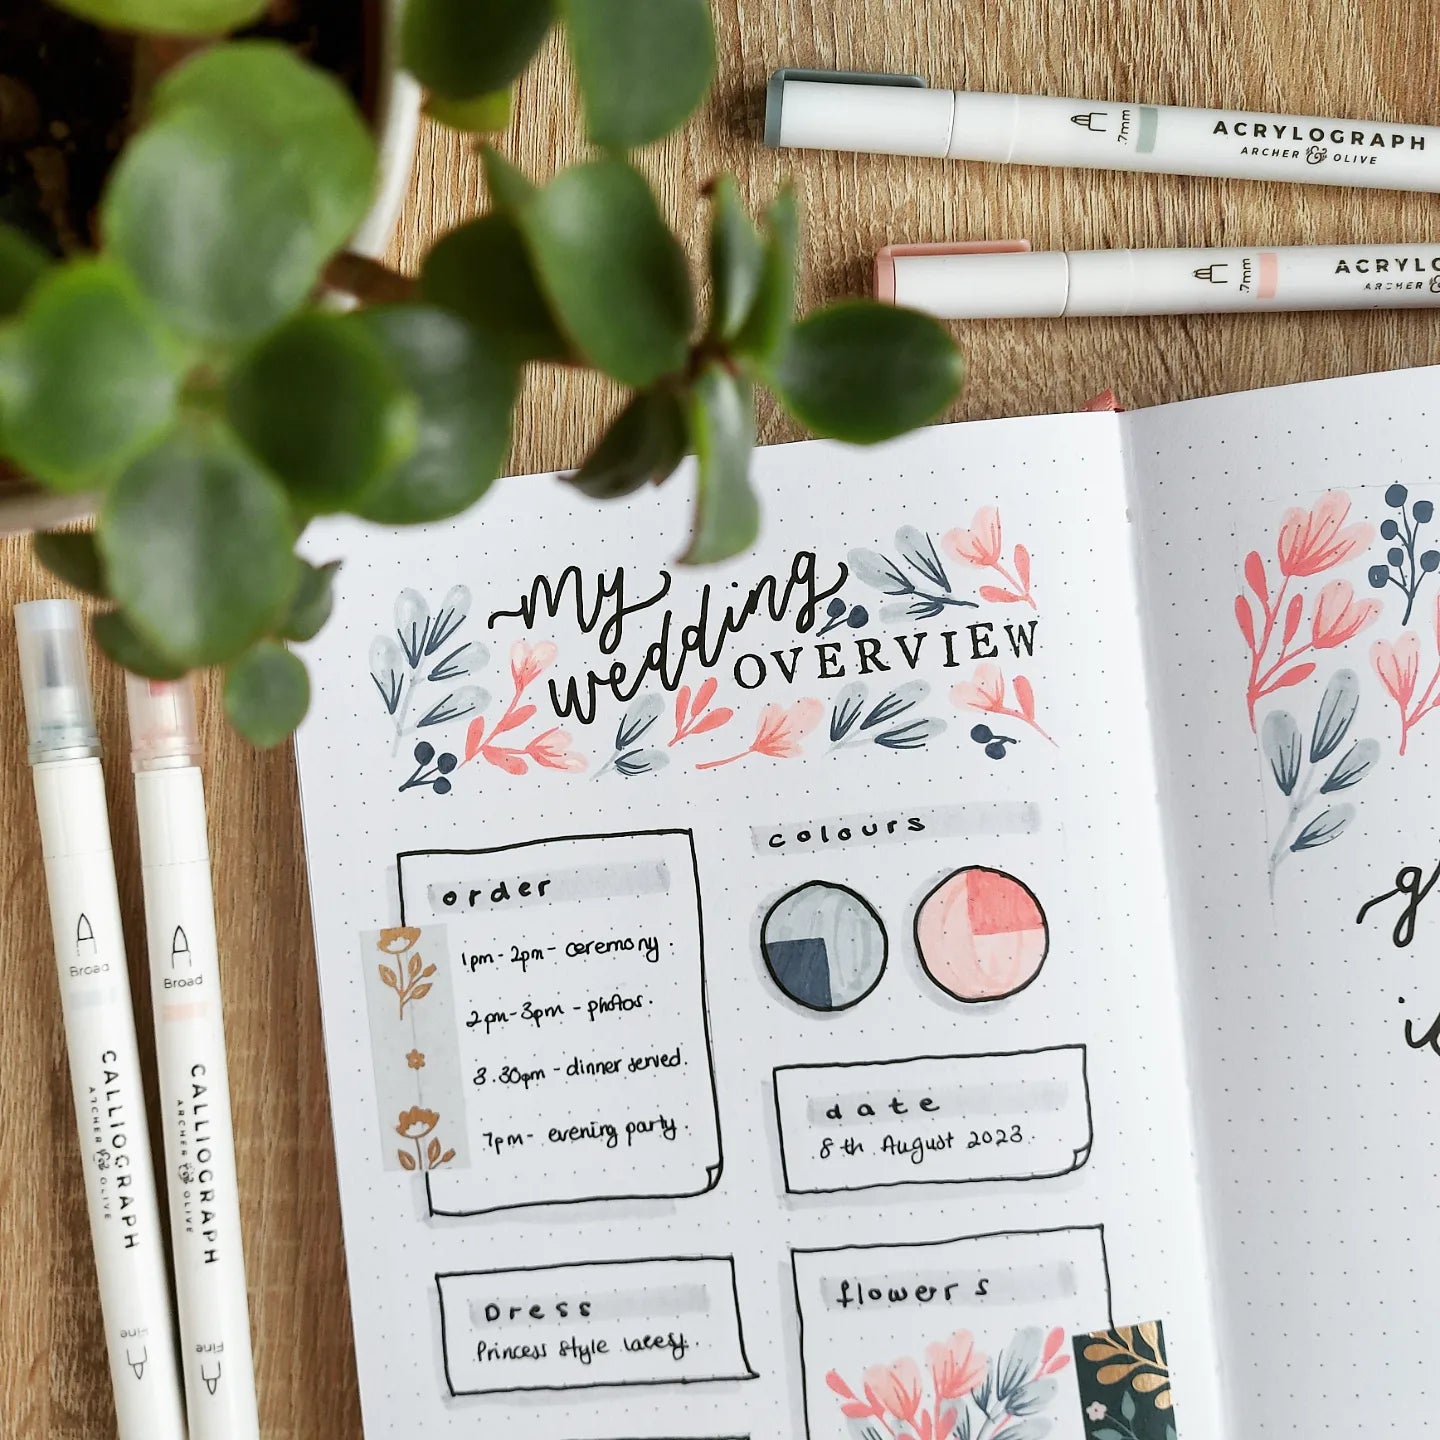 .7mm
ACRYLOGRAPH
ARCHER & OLIVE
.7mm
ACRYLO
ARCHER &
My
wedding
OVERVIEW
order
1pm - 2pm - ceremony.
2pm - 3pm - photos.
3.30pm - dinner served.
7pm - evening party.
colours
date
8th August 2023.
Dress
Princess style lacey.
flowers
Broad
CALLIOGRAPH
ARCHER & OLIVE
Fine
Broad
CALLIOGRAPH
ARCHER & OLIVE
Fine